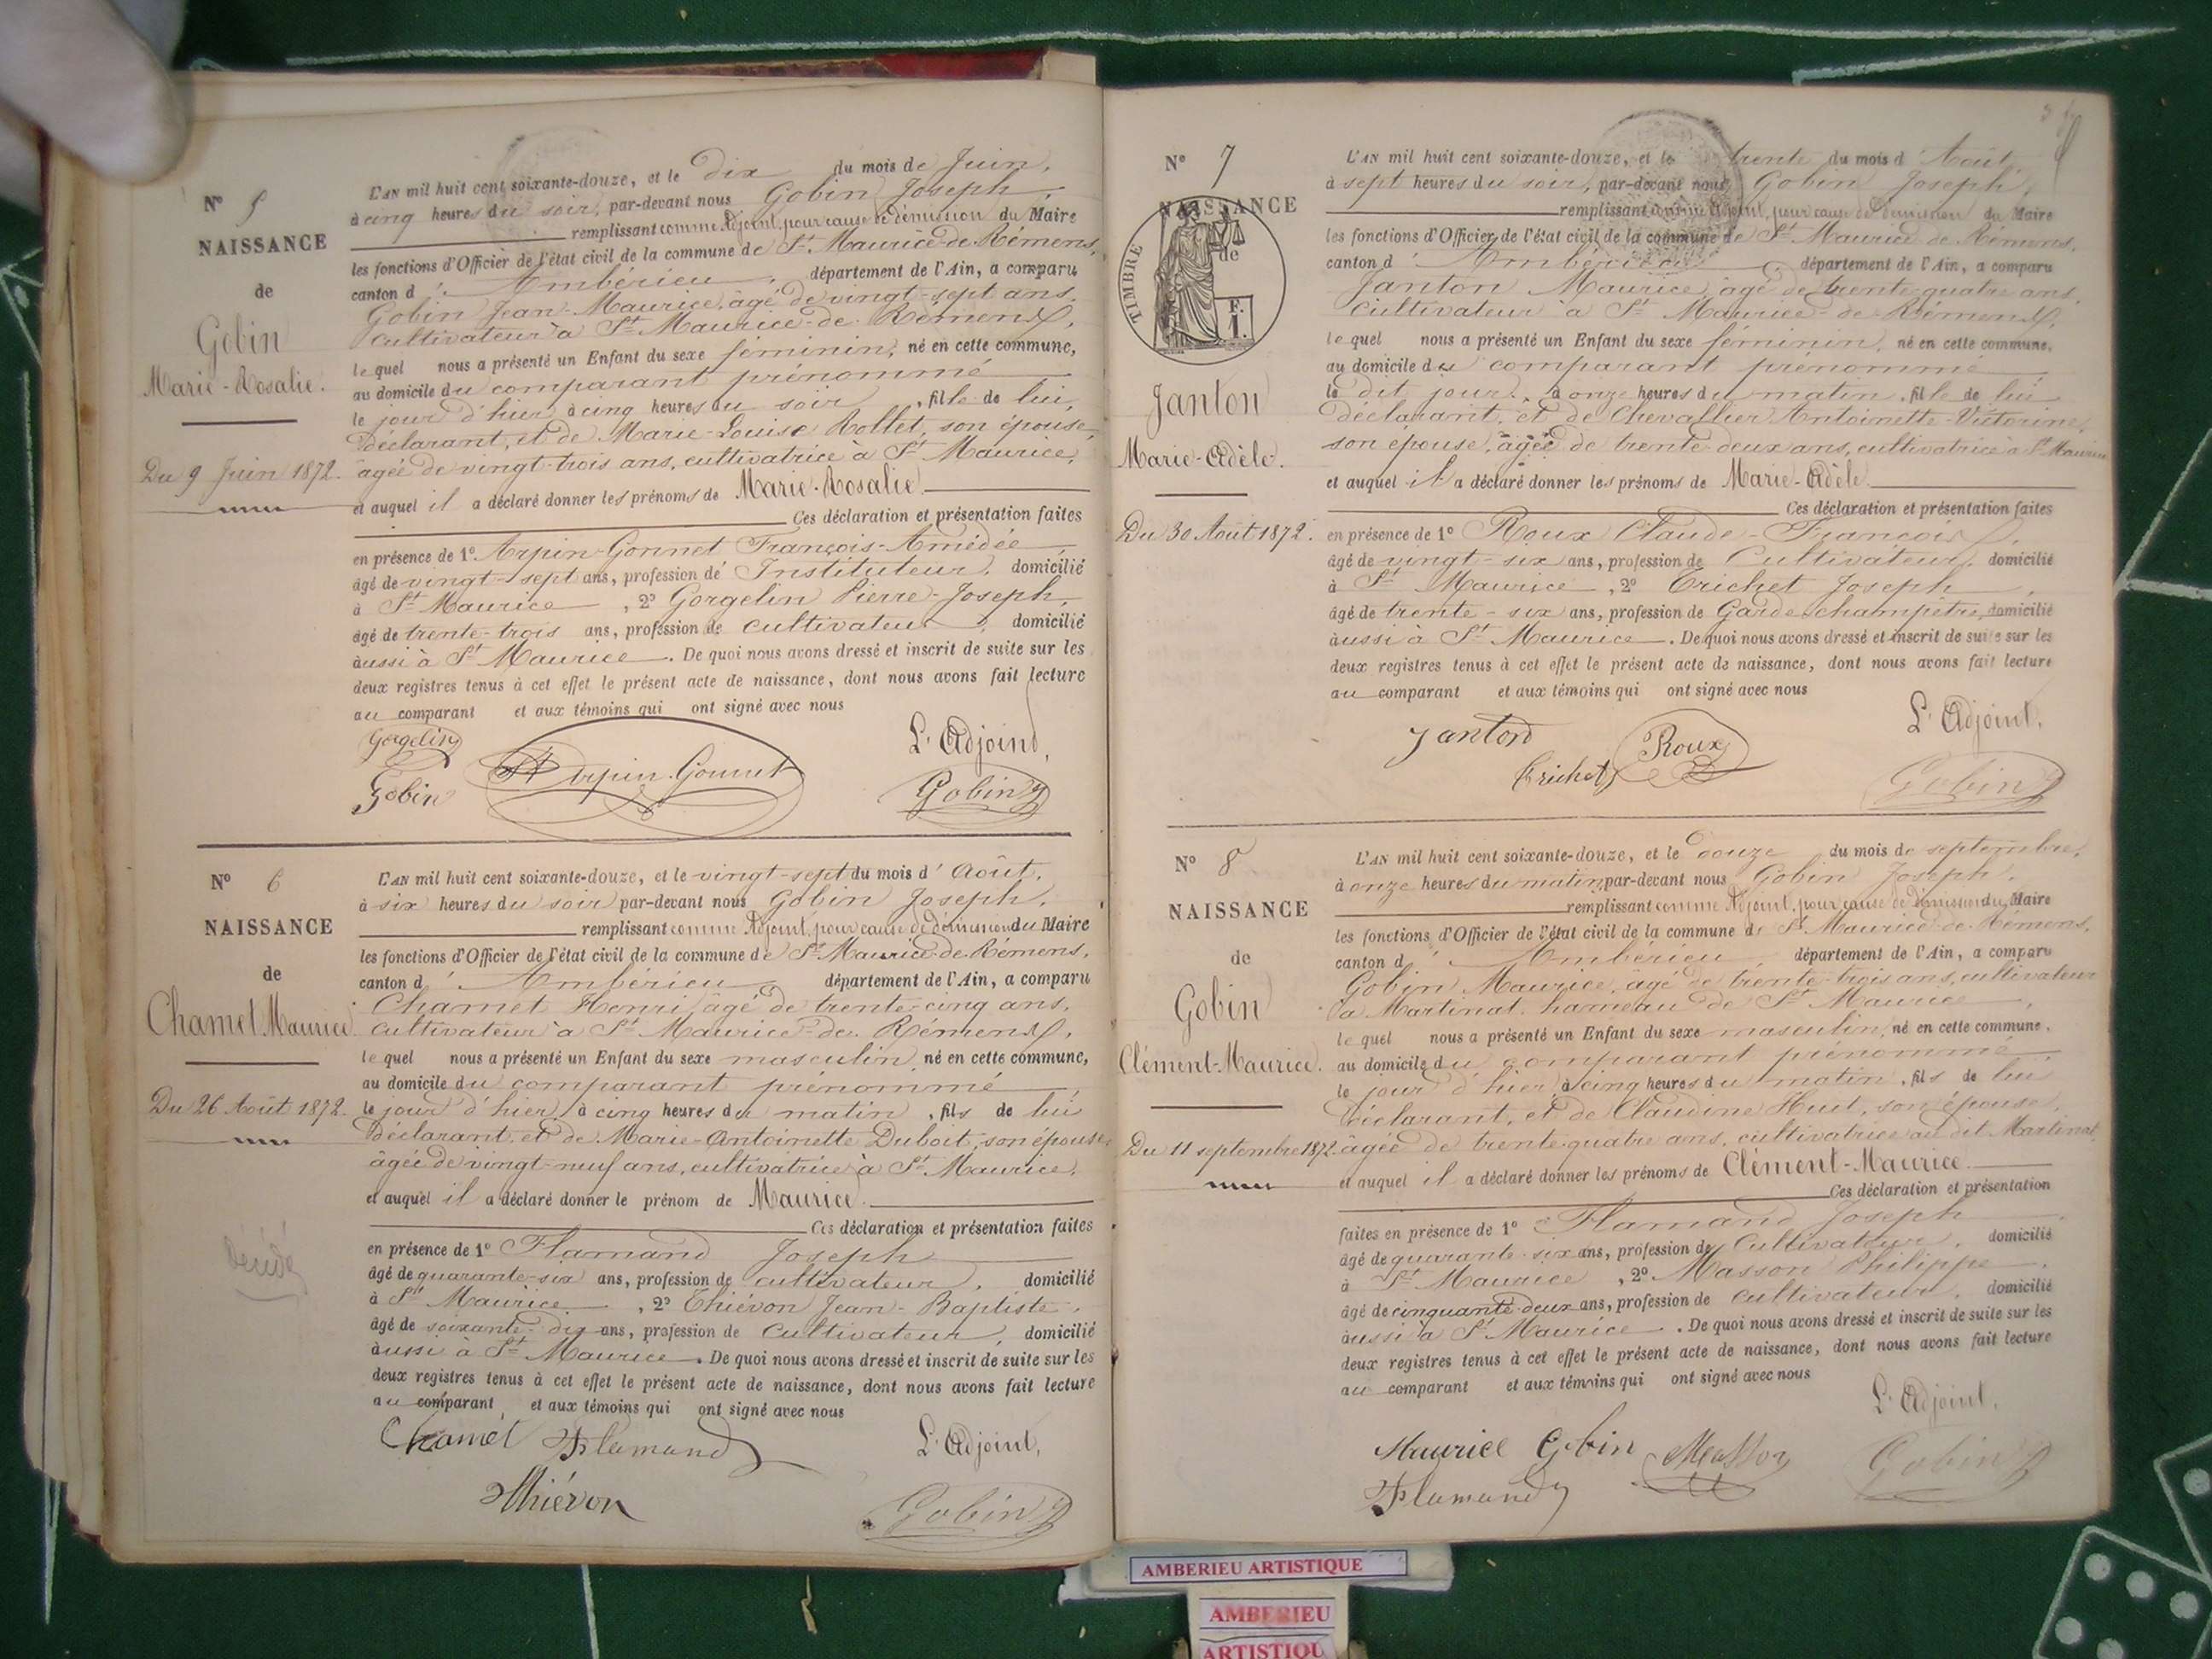 N° 5
NAISSANCE
de
Gobin
Marie-Rosalie.
Du 9 Juin 1872.
L'AN mil huit cent soixante-douze, et le dix du mois de Juin,
à cinq heures du soir, par-devant nous Gobin Joseph,
remplissant comme Adjoint, pour cause de démission du Maire
les fonctions d'Officier de l'état civil de la commune de St Maurice-de-Rémens,
canton d'Ambérieu, département de l'Ain, a comparu
Gobin Jean-Maurice, âgé de vingt-sept ans,
cultivateur à St Maurice-de-Rémens,
lequel nous a présenté un Enfant du sexe féminin, né en cette commune,
au domicile du comparant prénommé
le jour d'hier, à cinq heures du soir, fille de lui,
déclarant, et de Marie-Louise Rollet, son épouse,
âgée de vingt-trois ans, cultivatrice à St Maurice,
et auquel il a déclaré donner les prénoms de Marie-Rosalie.
Ces déclaration et présentation faites
en présence de 1° Arpin-Gonnet François-Amédée,
âgé de vingt-sept ans, profession de Instituteur, domicilié
à St Maurice, 2° Gorgelin Pierre-Joseph,
âgé de trente-trois ans, profession de cultivateur, domicilié
aussi à St Maurice. De quoi nous avons dressé et inscrit de suite sur les
deux registres tenus à cet effet le présent acte de naissance, dont nous avons fait lecture
au comparant et aux témoins qui ont signé avec nous
Gorgelin
L'Adjoint,
Gobin Arpin-Gonnet Gobin
N° 6
NAISSANCE
de
Chamel Maurice
Du 26 Août 1872.
décédé
L'AN mil huit cent soixante-douze, et le vingt-sept du mois d'Août,
à six heures du soir par-devant nous Gobin Joseph,
remplissant comme Adjoint, pour cause de démission du Maire
les fonctions d'Officier de l'état civil de la commune de St Maurice-de-Rémens,
canton d'Ambérieu, département de l'Ain, a comparu
Chamel Henri, âgé de trente-cinq ans,
cultivateur à St Maurice-de-Rémens,
lequel nous a présenté un Enfant du sexe masculin, né en cette commune,
au domicile du comparant prénommé,
le jour d'hier, à cinq heures du matin, fils de lui
déclarant, et de Marie-Antoinette Duboit, son épouse
âgée de vingt-neuf ans, cultivatrice à St Maurice,
et auquel il a déclaré donner le prénom de Maurice.
Ces déclaration et présentation faites
en présence de 1° Flamand Joseph
âgé de quarante-six ans, profession de cultivateur, domicilié
à St Maurice, 2° Thiévon Jean-Baptiste,
âgé de soixante-dix ans, profession de Cultivateur, domicilié
aussi à St Maurice. De quoi nous avons dressé et inscrit de suite sur les
deux registres tenus à cet effet le présent acte de naissance, dont nous avons fait lecture
au comparant et aux témoins qui ont signé avec nous
Chamel Flamand L'Adjoint,
Thiévon Gobin
N° 7
NAISSANCE
de
TIMBRE
F.
1.
Janton
Marie-Adèle.
Du 30 Août 1872.
L'AN mil huit cent soixante-douze, et le trente du mois d'Août,
à sept heures du soir, par-devant nous Gobin Joseph,
remplissant comme Adjoint, pour cause de démission du Maire
les fonctions d'Officier de l'état civil de la commune de St Maurice-de-Rémens,
canton d'Ambérieu département de l'Ain, a comparu
Janton Maurice, âgé de trente-quatre ans,
Cultivateur à St Maurice-de-Rémens,
lequel nous a présenté un Enfant du sexe féminin, né en cette commune,
au domicile du comparant prénommé
le dit jour, à onze heures du matin, fille de lui
déclarant, et de Chevallier Antoinette-Victorine,
son épouse, âgée de trente-deux ans, cultivatrice à St Maurice
et auquel il a déclaré donner les prénoms de Marie-Adèle.
Ces déclaration et présentation faites
en présence de 1° Roux Claude-François,
âgé de vingt-six ans, profession de Cultivateur, domicilié
à St Maurice, 2° Trichet Joseph,
âgé de trente-six ans, profession de Garde-champêtre, domicilié
aussi à St Maurice. De quoi nous avons dressé et inscrit de suite sur les
deux registres tenus à cet effet le présent acte de naissance, dont nous avons fait lecture
au comparant et aux témoins qui ont signé avec nous
L'Adjoint,
Janton Roux
Trichet Gobin
N° 8
NAISSANCE
de
Gobin
Clément-Maurice.
Du 11 septembre 1872.
L'AN mil huit cent soixante-douze, et le douze du mois de septembre,
à onze heures du matin, par-devant nous Gobin Joseph,
remplissant comme Adjoint, pour cause de démission du Maire
les fonctions d'Officier de l'état civil de la commune de St Maurice-de-Rémens,
canton d'Ambérieu, département de l'Ain, a comparu
Gobin Maurice, âgé de trente-trois ans, cultivateur
à Martinat, hameau de St Maurice,
lequel nous a présenté un Enfant du sexe masculin, né en cette commune,
au domicile du comparant prénommé
le jour d'hier, à cinq heures du matin, fils de lui
déclarant, et de Claudine Huit, son épouse,
âgée de trente-quatre ans, cultivatrice au dit Martinat,
et auquel il a déclaré donner les prénoms de Clément-Maurice.
Ces déclaration et présentation
faites en présence de 1° Flamand Joseph
âgé de quarante-six ans, profession de Cultivateur, domicilié
à St Maurice, 2° Masson Philippe,
âgé de cinquante-deux ans, profession de cultivateur, domicilié
aussi à St Maurice. De quoi nous avons dressé et inscrit de suite sur les
deux registres tenus à cet effet le présent acte de naissance, dont nous avons fait lecture
au comparant et aux témoins qui ont signé avec nous
L'Adjoint,
Maurice Gobin Masson Gobin
Flamand
AMBERIEU ARTISTIQUE
AMBERIEU
ARTISTIQU